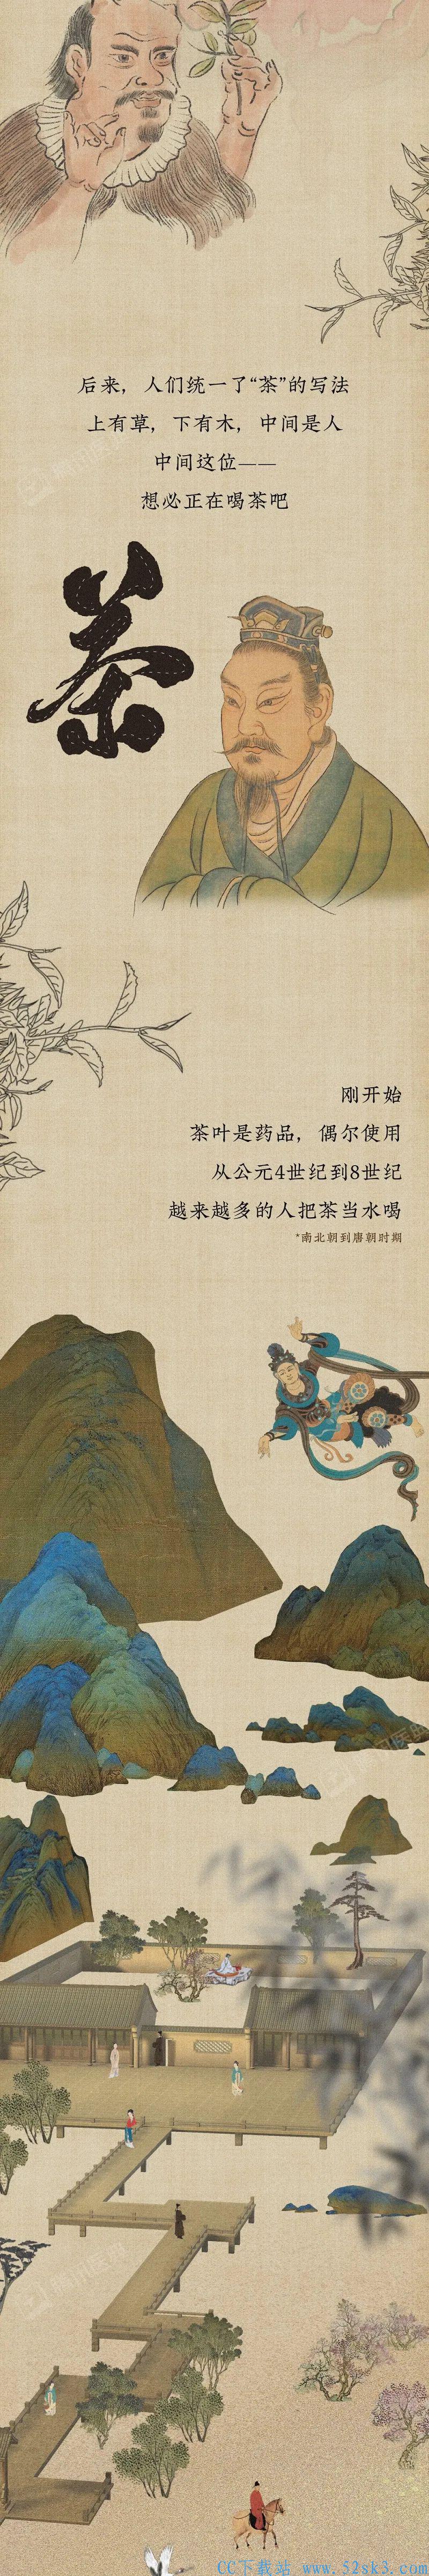 后来，人们统一了“茶”的写法
上有草，下有木，中间是人
中间这位——
想必正在喝茶吧
茶
刚开始
茶叶是药品，偶尔使用
从公元4世纪到8世纪
越来越多的人把茶当水喝
*南北朝到唐朝时期
CC下载站 www.52sk3.com